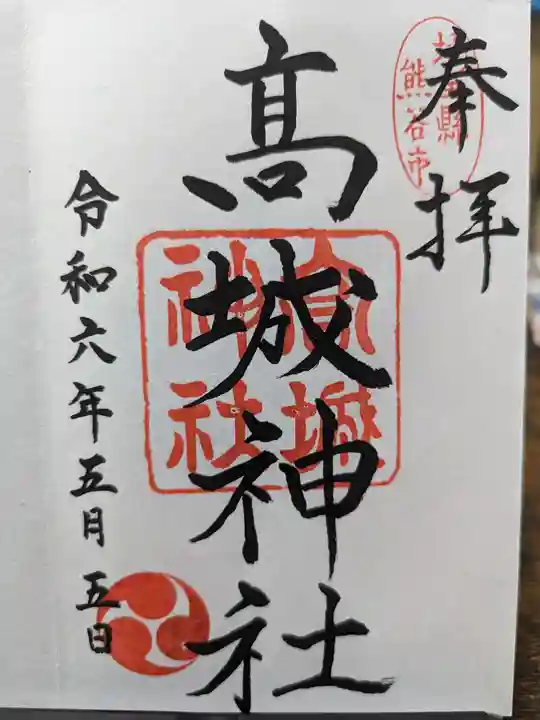 奉拝
埼玉縣
熊谷市
高城神社
高城
神社
令和六年五月五日